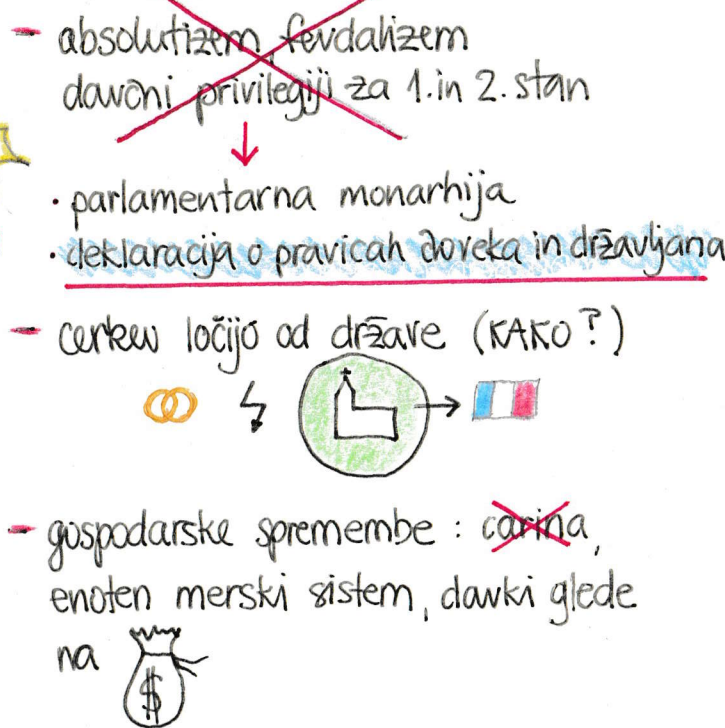 - absolutizem, fevdalizem
davčni privilegiji za 1. in 2. stan
· parlamentarna monarhija
· deklaracija o pravicah človeka in državljana
- cerkev ločijo od države (KAKO?)
- gospodarske spremembe : carina,
enoten merski sistem, davki glede
na $